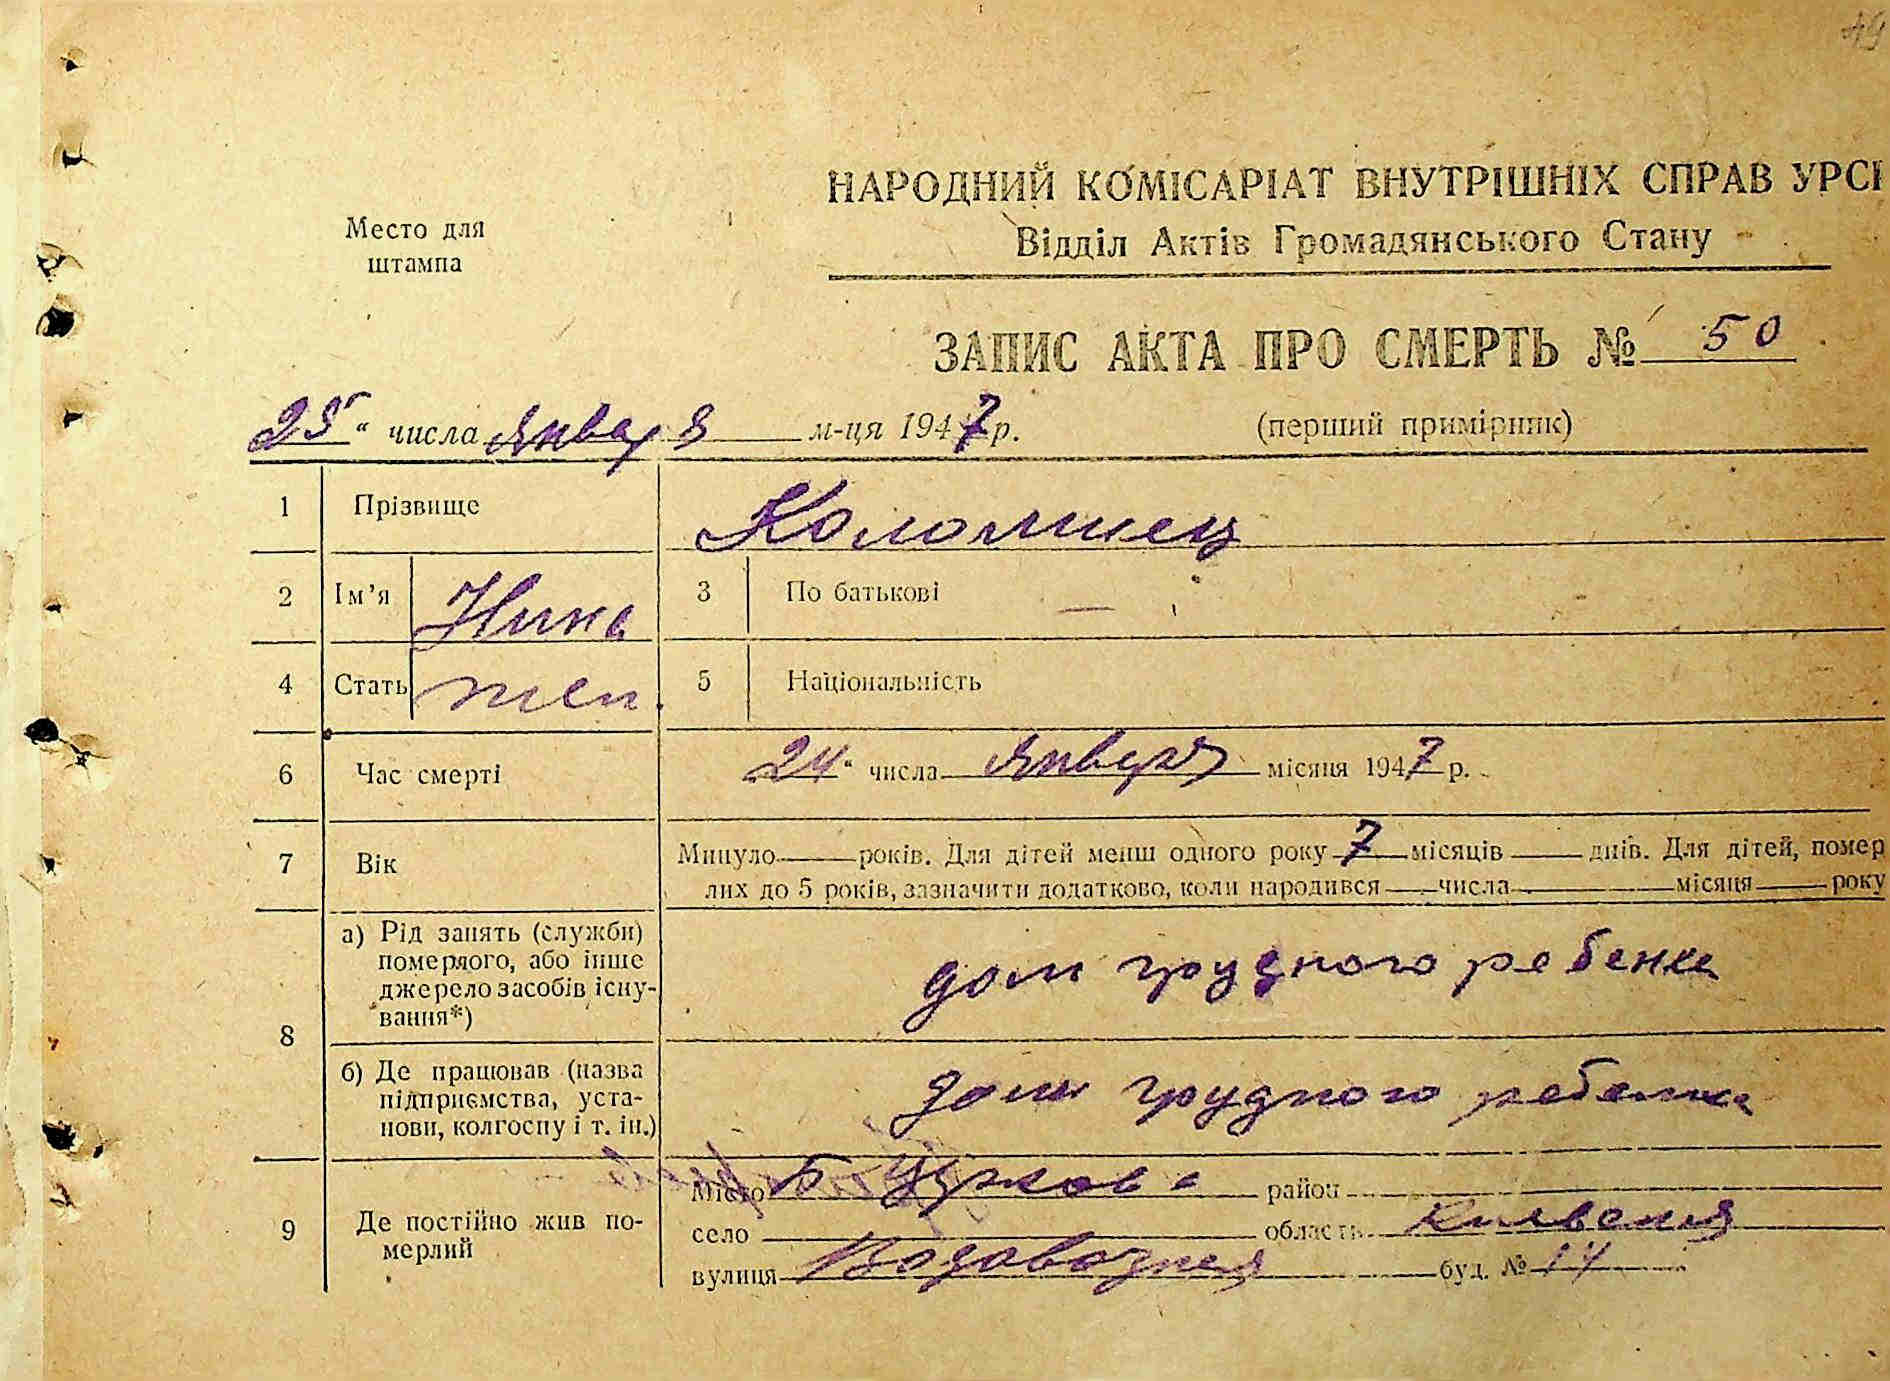 49
НАРОДНИЙ КОМІСАРІАТ ВНУТРІШНІХ СПРАВ УРСР
Відділ Актів Громадянського Стану
Место для
штампа
ЗАПИС АКТА ПРО СМЕРТЬ № 50
25 " числа января м-ця 1947 р. (перший примірник)
1 Прізвище Коломиец
2 Ім’я Нина 3 По батькові —
4 Стать жен. 5 Національність
6 Час смерті 24 " числа января місяця 1947 р.
7 Вік Минуло — років. Для дітей менш одного року 7 місяців — днів. Для дітей, помер
лих до 5 років, зазначити додатково, коли народився — числа — місяця — року
8 а) Рід занять (служби)
померлого, або інше
джерело засобів існу-
вання*) дом грудного ребенка
б) Де працював (назва
підприємства, уста-
нови, колгоспу і т. ін.) дом грудного ребенка
9 Де постійно жив по-
мерлий
місто Б Церковь район
село область Киевская
вулиця буд. № 14